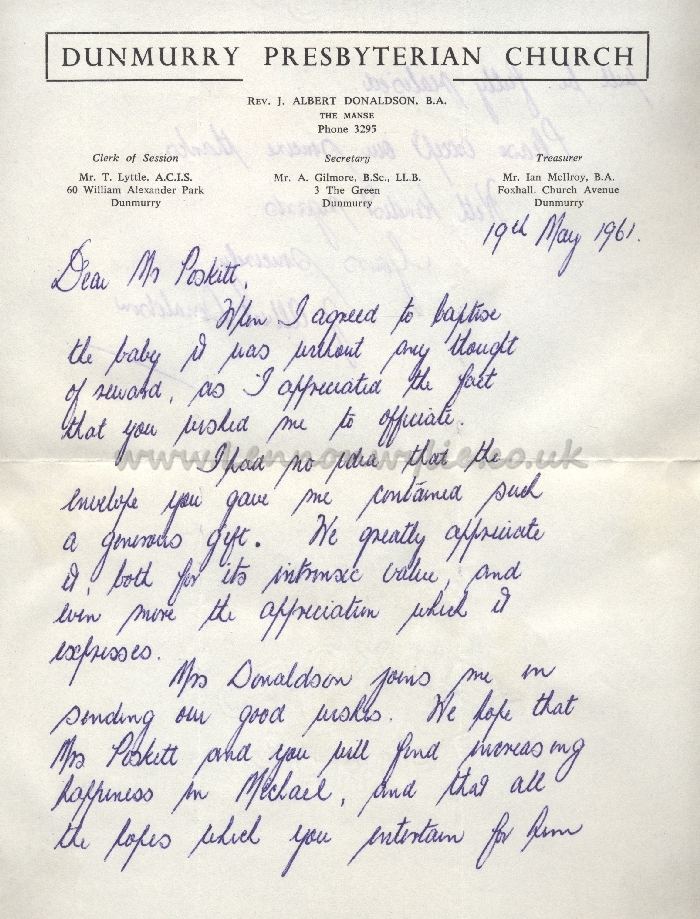 DUNMURRY PRESBYTERIAN CHURCH
REV. J. ALBERT DONALDSON, B.A.
THE MANSE
Phone 3295
Clerk of Session
Mr. T. Lyttle, A.C.I.S.
60 William Alexander Park
Dunmurry
Secretary
Mr. A. Gilmore, B.Sc., LL.B.
3 The Green
Dunmurry
Treasurer
Mr. Ian McIlroy, B.A.
Foxhall, Church Avenue
Dunmurry
19th May 1961.
Dear Mr Poskitt,
When I agreed to baptise
the baby it was without any thought
of reward, as I appreciated the fact
that you wished me to officiate.
I had no idea that the
envelope you gave me contained such
a generous gift. We greatly appreciate
it, both for its intrinsic value, and
even more the appreciation which it
expresses.
Mrs Donaldson joins me in
sending our good wishes. We hope that
Mrs Poskitt and you will find increasing
happiness in Michael, and that all
the hopes which you entertain for him
www.lennonwylie.co.uk